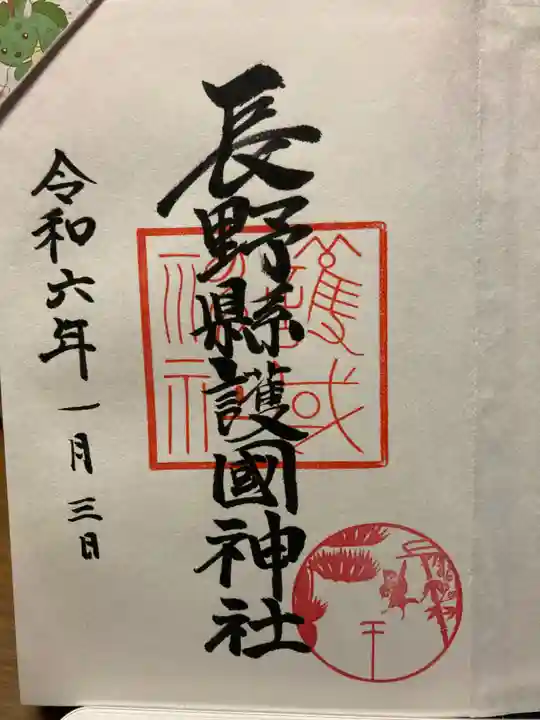 長野縣護國神社
令和六年一月三日